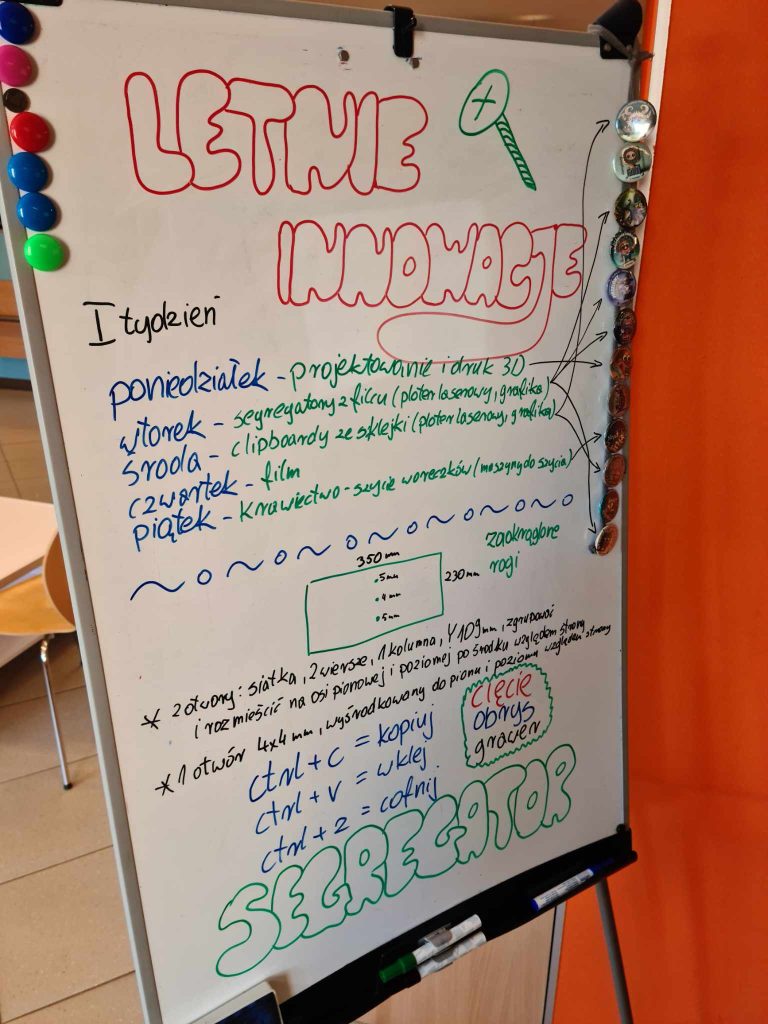 LETNIE
INNOWACJE
I tydzień
poniedziałek - projektowanie i druk 3D
wtorek - segregatory z filcu (ploter laserowy, grafika)
środa - clipboardy ze sklejki (ploter laserowy, grafika)
czwartek - film
piątek - krawiectwo - szycie woreczków (maszyny do szycia)
350 mm
5mm
4mm
5mm
230mm
zaokrąglone
rogi
* 2 otwory: siatka, 2 wiersze, 1 kolumna, Y 109mm, zgrupować
i rozmieścić na osi pionowej i poziomej po środku względem strony
* 1 otwór 4x4 mm, wyśrodkowany do pionu i poziomu względem strony
cięcie
obrys
grawer
ctrl + c = kopiuj
ctrl + v = wklej
ctrl + z = cofnij
SEGREGATOR